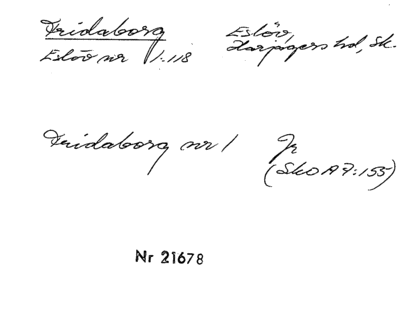 Fridaborg Eslöv,
Eslöv nr 1:118 Harjagers hd, Sk.
Fridaborg nr 1 Jr
(SkOA 7:155)
Nr 21678